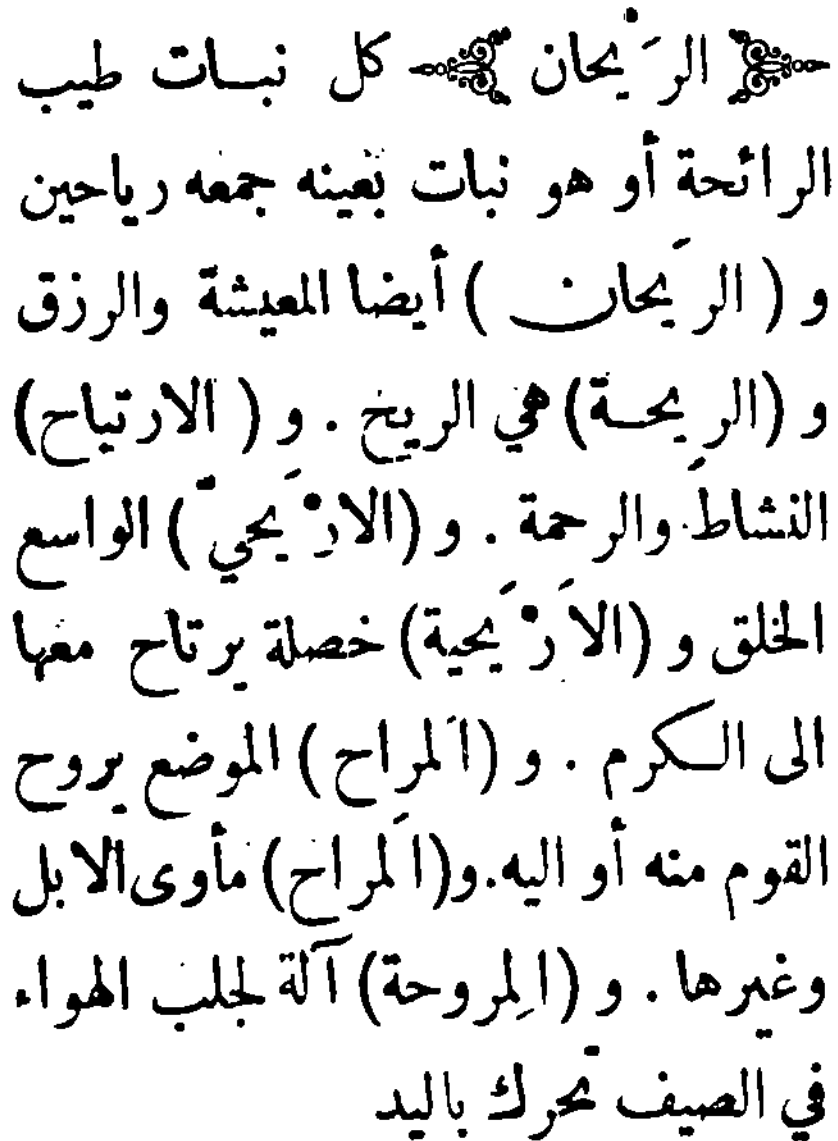 الرَيْحان كل نبــات طيب
الرائحة أو هو نبات بعينه جمعه رياحين
و ( الرَيحان ) أيضا المعيشة والرزق
و (الريحــة) هي الريح . و ( الارتياح)
النشاط والرحمة . و (الارْيَحيّ ) الواسع
الخلق و (الاَرْيَحية) خصلة يرتاح معها
الى الــكرم . و (المَراح ) الموضع يروح
القوم منه أو اليه.و(المُراح) مأوى الابل
وغيرها . و (المِروحة) آلة لجلب الهواء
في الصيف تحرك باليد